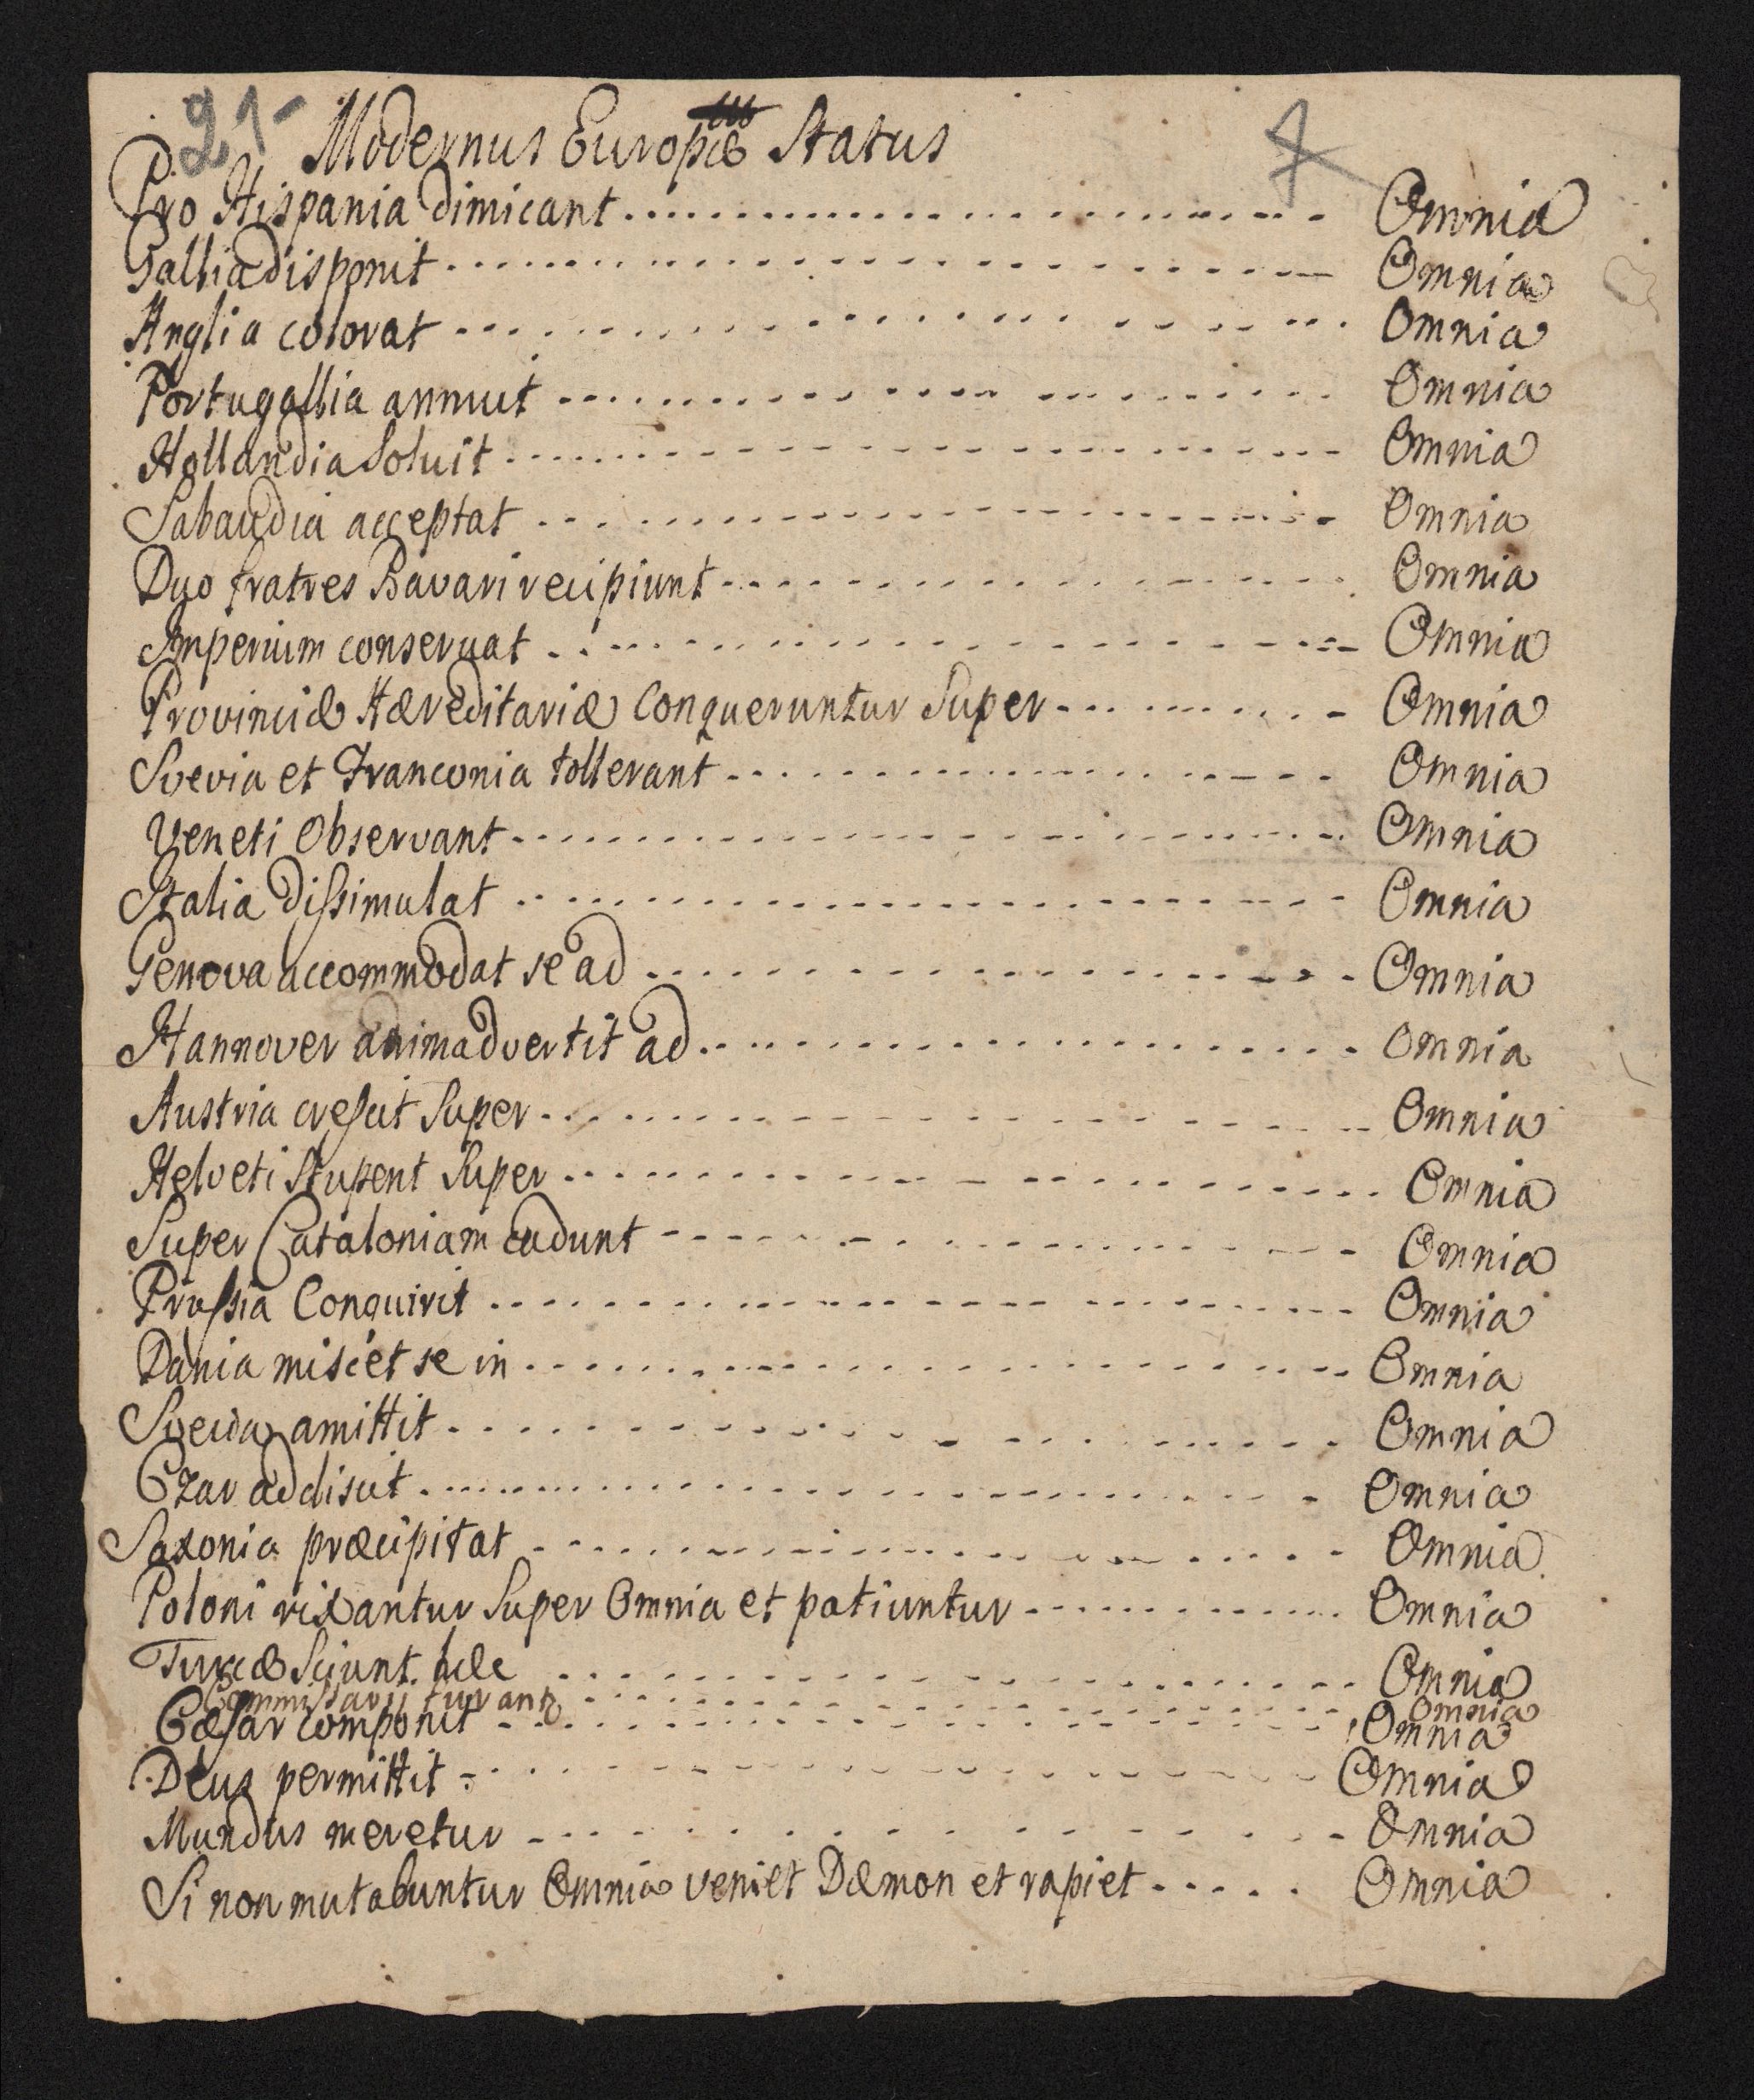 21-
Modernus Europæ Status
Pro Hispania dimicant ........................ Omnia
Gallia disponit ........................ Omnia
Anglia colorat ........................ Omnia
Portugallia annuit ........................ Omnia
Hollandia Soluit ........................ Omnia
Sabaudia acceptat ........................ Omnia
Duo fratres Bavari recipiunt ........................ Omnia
Imperium conservat ........................ Omnia
Provinciæ Hæreditariæ Conqueruntur Super ............ Omnia
Svevia et Franconia tollerant ........................ Omnia
Veneti Observant ........................ Omnia
Italia dissimulat ........................ Omnia
Genova accommodat se ad ........................ Omnia
Hannover animadvertit ad ........................ Omnia
Austria crescit Super ........................ Omnia
Helveti Stupent Super ........................ Omnia
Super Cataloniam cadunt ........................ Omnia
Prussia Conquirit ........................ Omnia
Dania miscet se in ........................ Omnia
Svecia amittit ........................ Omnia
Czar addiscit ........................ Omnia
Saxonia præcipitat ........................ Omnia
Poloni rixantur Super Omnia et patiuntur ............ Omnia
Turcæ Sciunt hæc ........................ Omnia
Commissarii furantur ........................ Omnia
Cæsar componit ........................ Omnia
Deus permittit ........................ Omnia
Mundus meretur ........................ Omnia
Si non mutabuntur Omnia veniet Dæmon et rapiet ..... Omnia